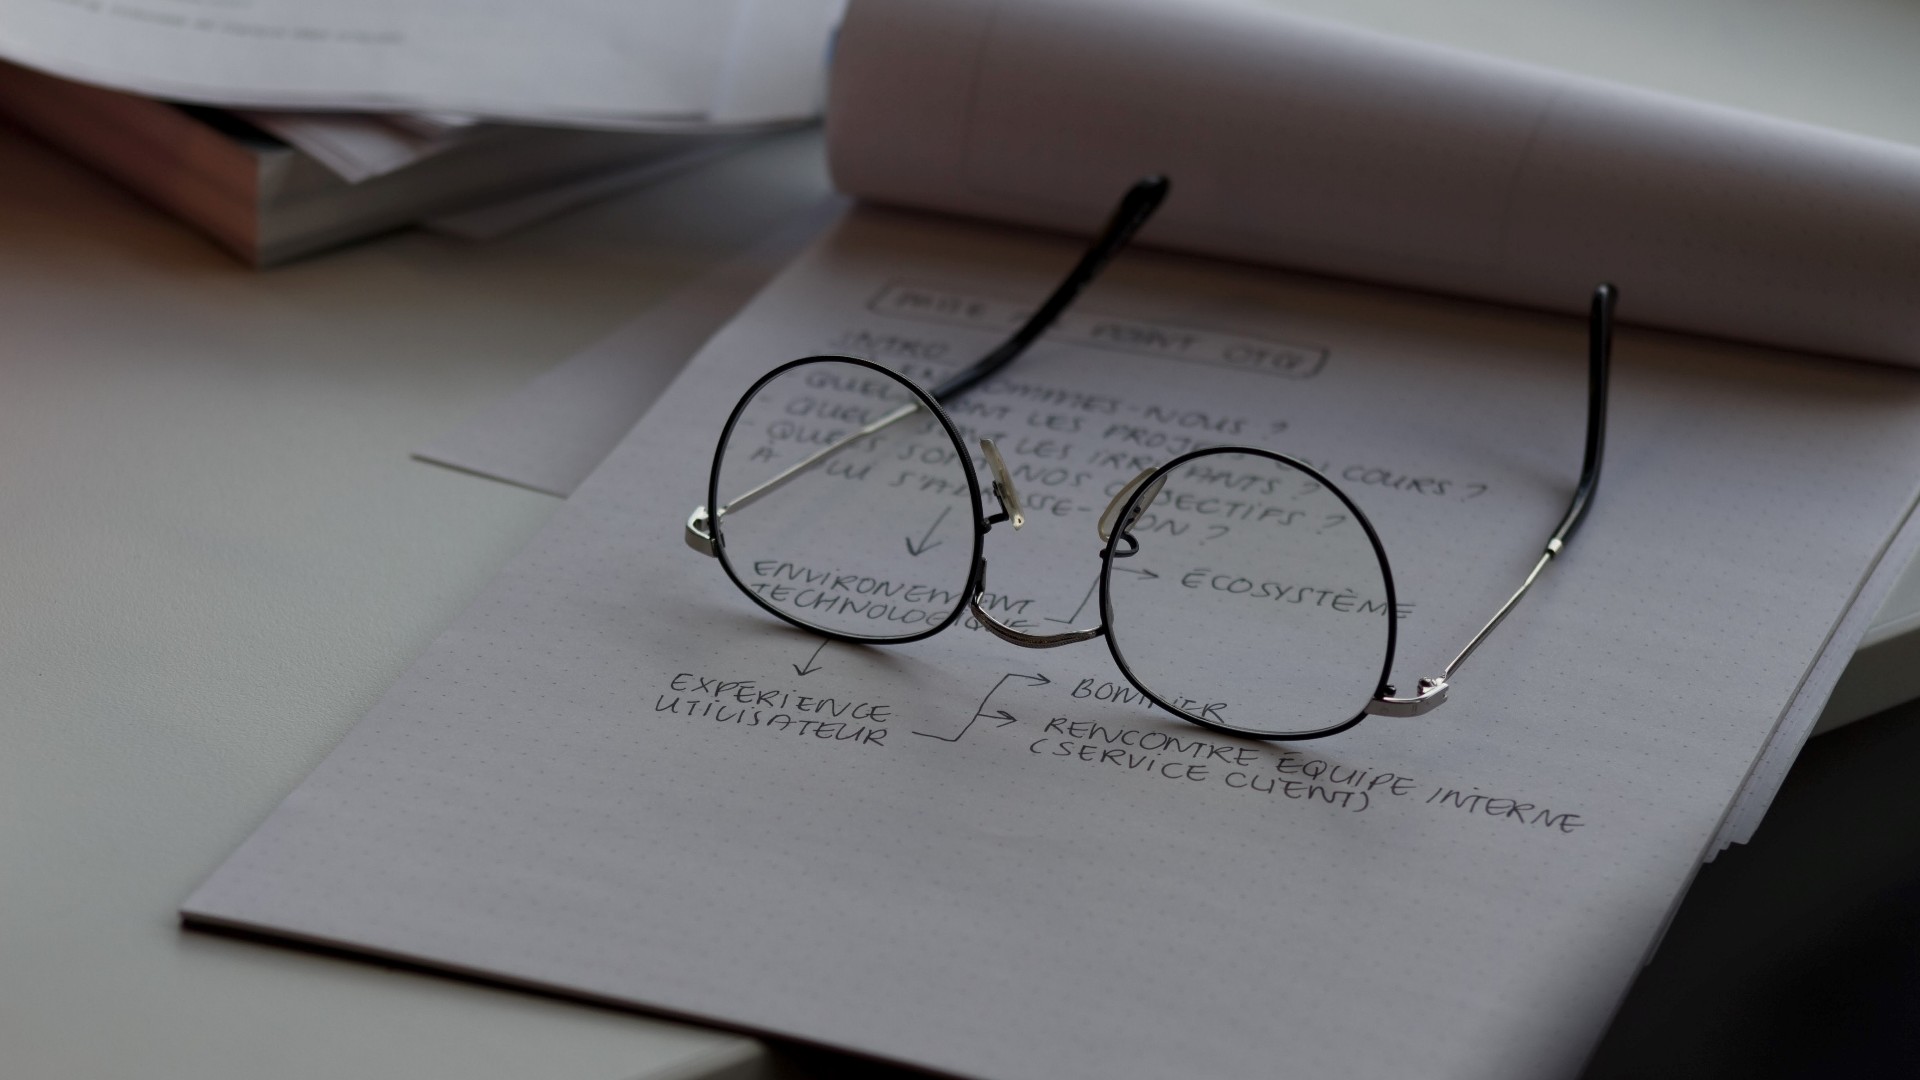 POINT
INTRO
SOMMES-NOUS ?
QUELS SONT LES PROJETS EN COURS ?
- QUELS SONT LES IRRITANTS ?
- QUELS SONT NOS OBJECTIFS ?
À QUI S'ADRESSE-T-ON ?
ENVIRONEMENT
TECHNOLOGIQUE
ÉCOSYSTÈME
EXPERIENCE
UTILISATEUR
BONIFIER
RENCONTRE ÉQUIPE INTERNE
(SERVICE CLIENT)